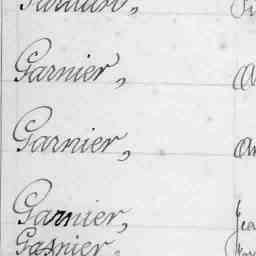 Garnier,
Garnier,
Garnier,
Gasnier,